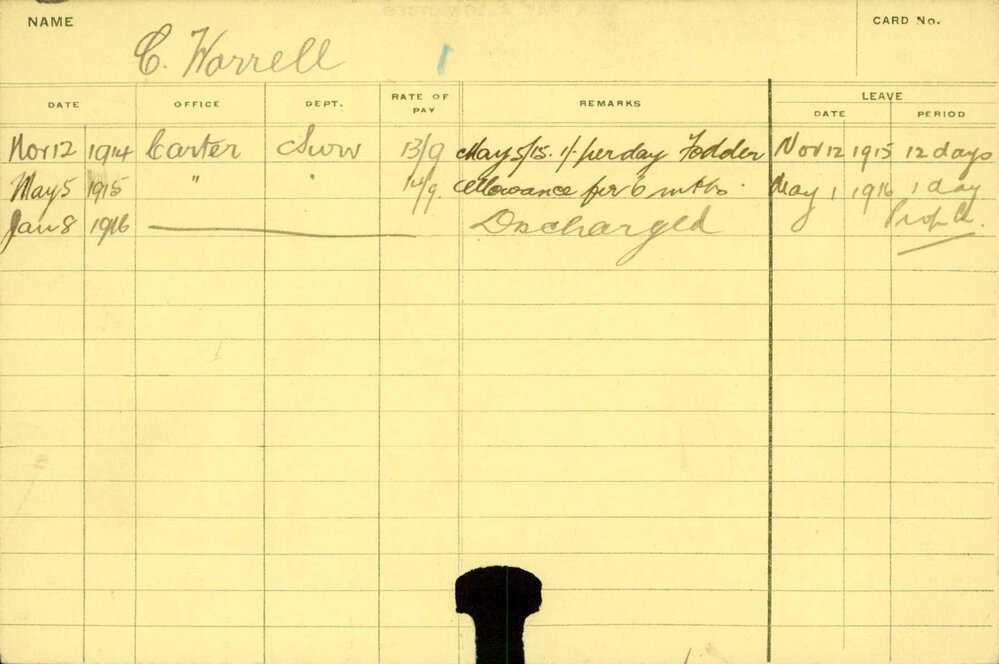 NAME
CARD No.
C. Worrell
DATE OFFICE DEPT. RATE OF PAY REMARKS LEAVE
DATE PERIOD
Nov 12 1914 Carter 13/9 May 5/15. 1/ per day Fodder Nov 12 1915 12 days
May 5 1915 " " 14/9. allowance for 6 mths. May 1 1916 1 day
Jan 8 1916 Discharged